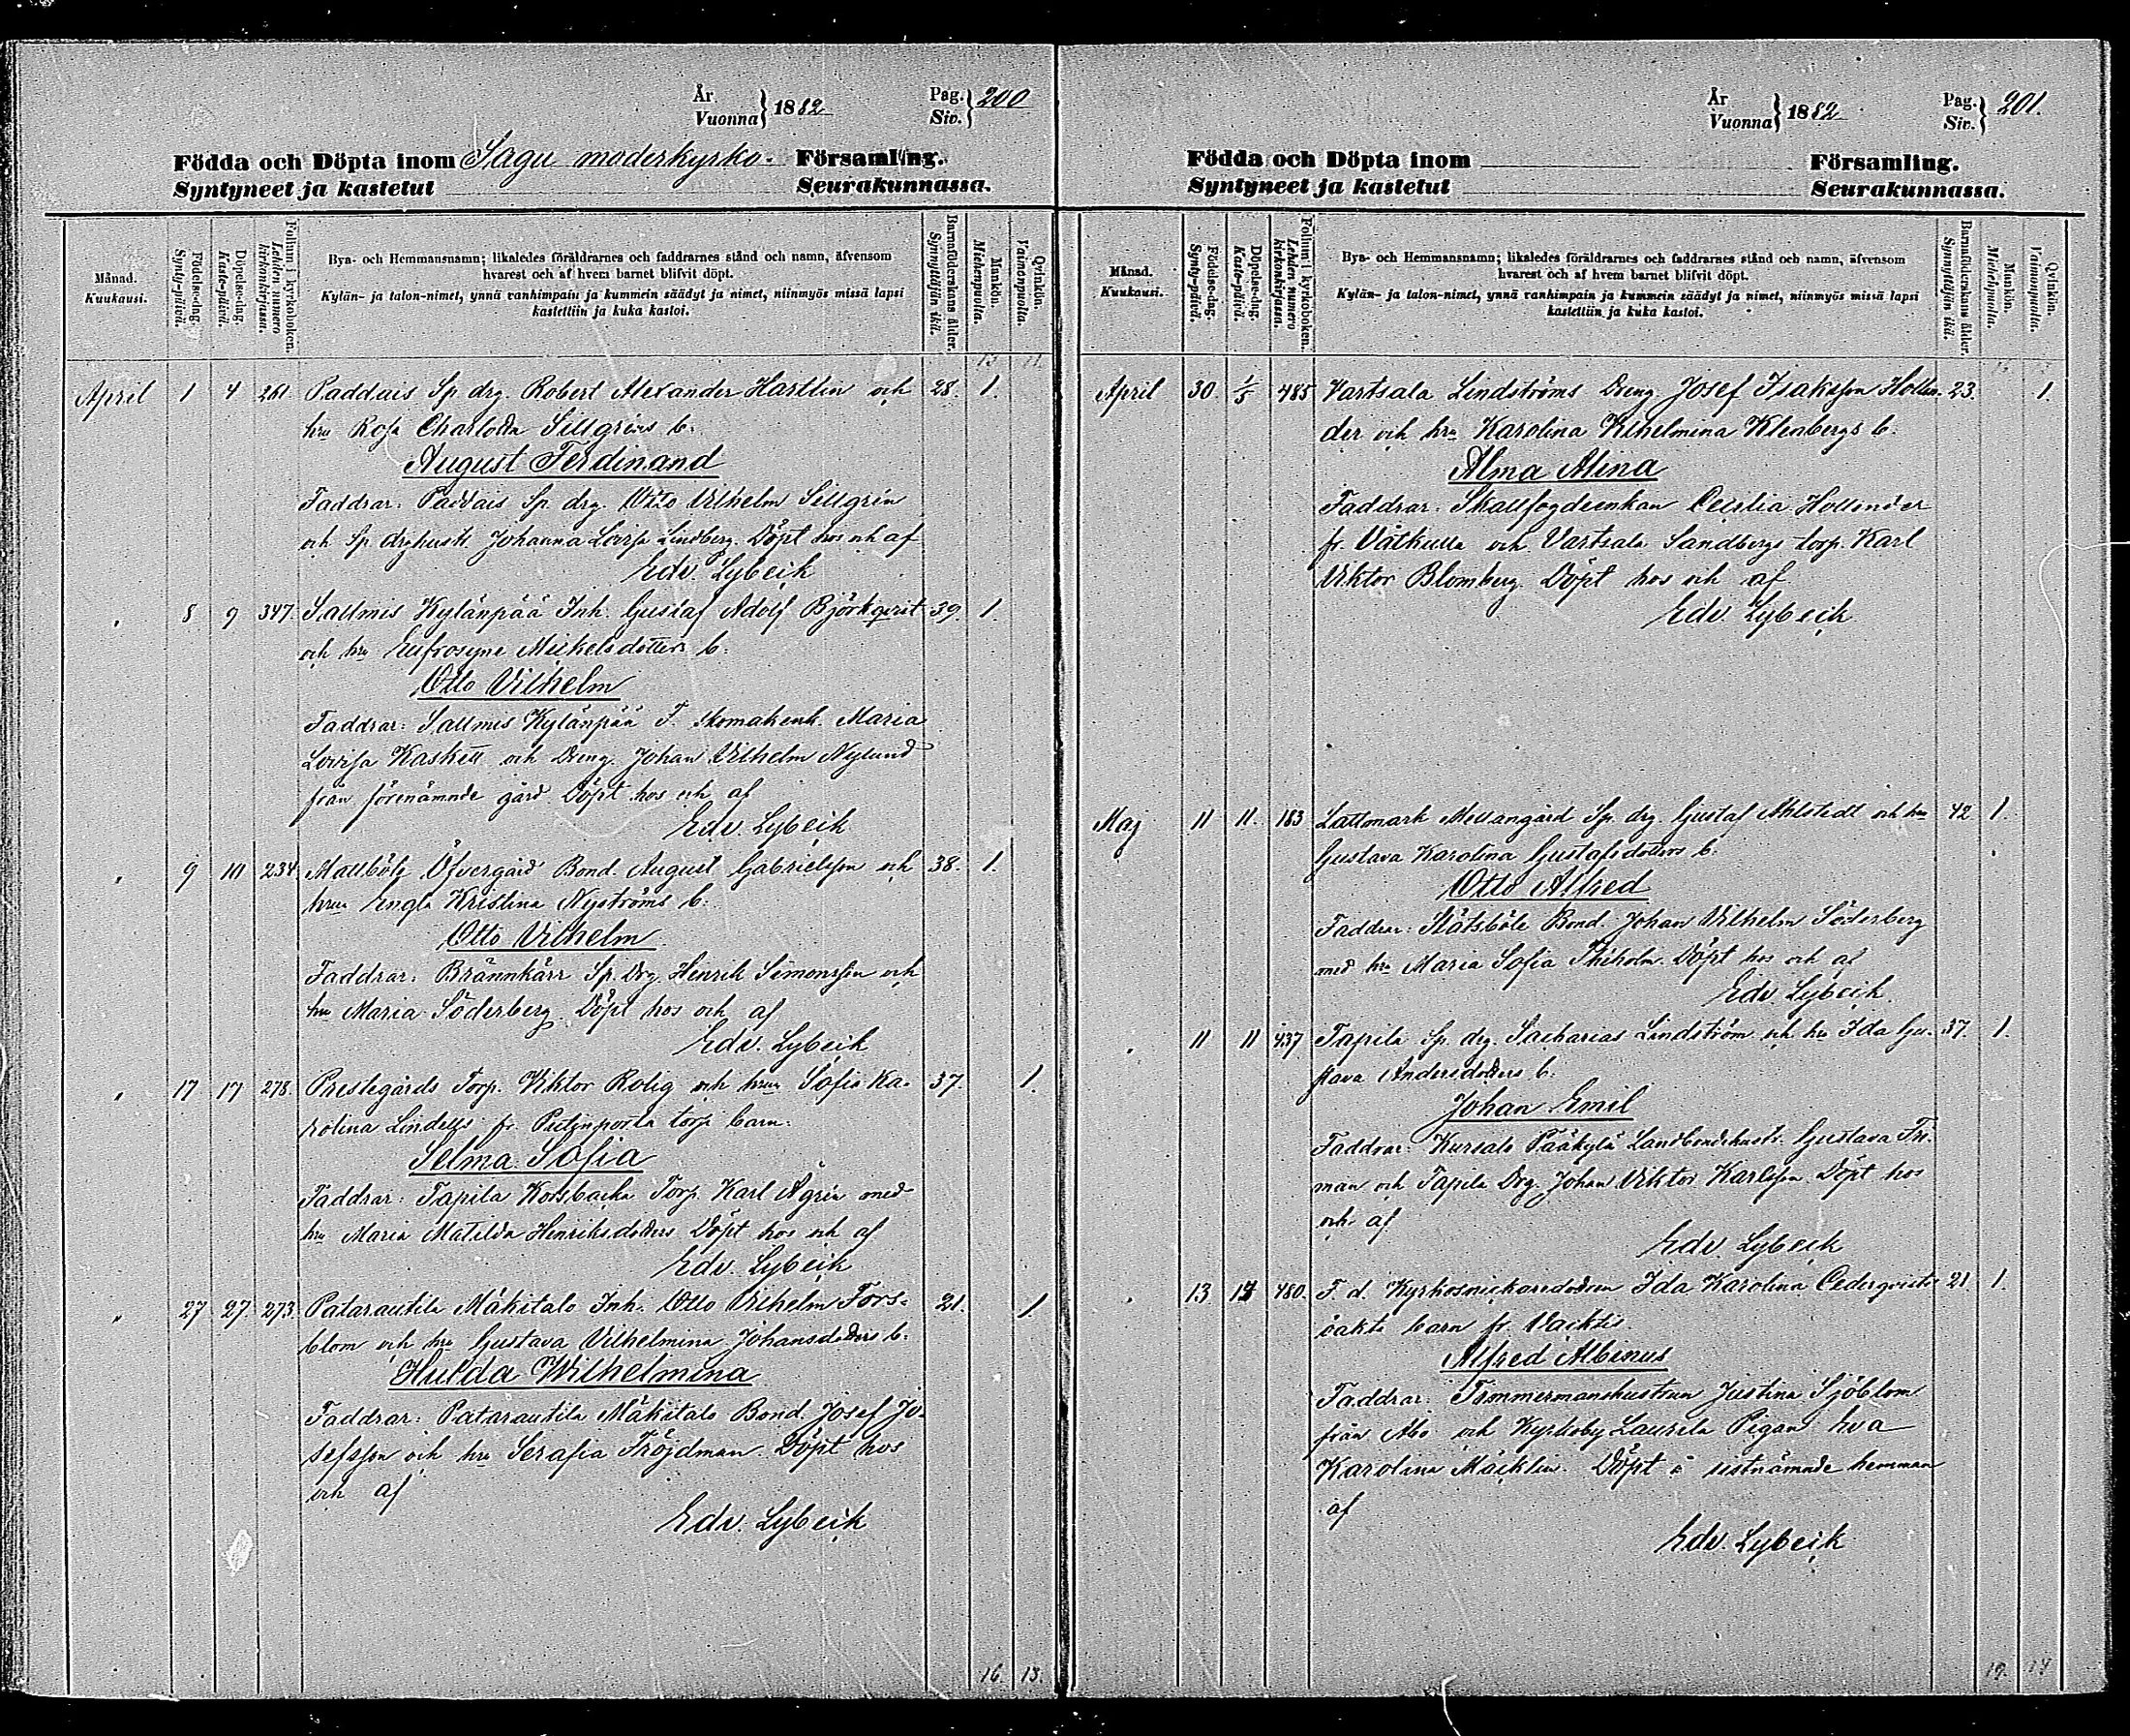 År
Vuonna } 1882
Pag.
Siv. } 200
Födda och Döpta inom Sagu moderkyrko- Församling.
Syntyneet ja kastetut Seurakunnassa.
Månad.
Kuukausi.
Födelse-dag.
Synty-päivä.
Döpelse-dag.
Kaste-päivä.
Folium i kyrkoboken.
Lehden numero kirkonkirjassa.
Bya- och Hemmansnamn; likaledes föräldrarnes och faddrarnes stånd och namn, äfvensom
hvarest och af hvem barnet blifvit döpt.
Kylän- ja talon-nimet, ynnä vanhimpain ja kummein säädyt ja nimet, niinmyös missä lapsi
kastettiin ja kuka kastoi.
Barnaföderskans ålder.
Synnyttäjän ikä.
Mankön.
Miehenpuolia.
Qvinkön.
Vaimonpuolia.
13 11
April 1 4 261 Paddais Sp. drg. Robert Alexander Hartlin och 28. 1.
hru Rosa Charlotta Sillgréns b.
August Ferdinand
Faddrar: Paddais Sp. drg. Otto Vilhelm Sillgrén
och Sp. drghustr. Johanna Lovisa Lindberg. Döpt hos och af
Edv. Lybeck
" 8 9 347. Salmis Kylänpää Inh. Gustaf Adolf Björkqvist 39. 1.
och hru Eufrosyne Mickelsdotters b.
Otto Vilhelm
Faddrar: Salmis Kylänpää F. Skomakenk. Maria
Lovisa Kaskett och Dreng. Johan Vilhelm Nylund
från förenämnde gård. Döpt hos och af
Edv. Lybeck
" 9 10 234. Mallböle Öfvergård Bond. August Gabrielsson och 38. 1.
hru Engla Kristina Nyströms b.
Otto Vilhelm
Faddrar: Brännkärr Sp. Drg. Henrik Simonsson och
hru Maria Söderberg. Döpt hos och af
Edv. Lybeck
" 17 17 278. Prestegårds Torp. Viktor Rolig och hrun Sofia Ka- 37. 1.
rolina Lindells fr. torp barn.
Selma Sofia
Faddrar: Tapila Korsbacka Torp. Karl Ågrén med
hru Maria Matilda Henriksdotters Döpt hos och af
Edv. Lybeck
" 27 27. 273. Patarautila Mäkitalo Inh. Otto Vilhelm Fors- 21. 1.
blom och hru Gustava Vilhelmina Johansdotters b.
Hulda Wilhelmina
Faddrar: Patarautila Mäkitalo Bond. Josef Jo-
sefsson och hru Serafia Fröjdman. Döpt hos
och af
Edv. Lybeck
16. 13.
År
Vuonna } 1882
Pag.
Siv. } 201.
Födda och Döpta inom Församling.
Syntyneet ja kastetut Seurakunnassa.
Månad.
Kuukausi.
Födelse-dag.
Synty-päivä.
Döpelse-dag.
Kaste-päivä.
Folium i kyrkoboken.
Lehden numero kirkonkirjassa.
Bya- och Hemmansnamn; likaledes föräldrarnes och faddrarnes stånd och namn, äfvensom
hvarest och af hvem barnet blifvit döpt.
Kylän- ja talon-nimet, ynnä vanhimpain ja kummein säädyt ja nimet, niinmyös missä lapsi
kastettiin ja kuka kastoi.
Barnaföderskans ålder.
Synnyttäjän ikä.
Mankön.
Miehenpuolia.
Qvinkön.
Vaimonpuolia.
April 30. 1/5 485 Vartsala Lindströms Dreng Josef Isaksson Hollän- 23. 1.
der och hru Karolina Vilhelmina Klenbergs b.
Alma Alina
Faddrar: Skallfogdeenkan Cecilia Hollender
fr. Våtkulla och Vartsala Sandbergs torp. Karl
Viktor Blomberg. Döpt hos och af
Edv. Lybeck
Maj 11 11. 183 Lattomark Mellangård Sp. drg Gustaf Ahlstedt och hru 42 1.
Gustava Karolina Gustafsdotters b.
Otto Alfred
Faddrar: Slätsböle Bond. Johan Vilhelm Söderberg
med hru Maria Sofia Döpt hos och af
Edv Lybeck.
" 11 11 437 Tapila Sp. drg. Sacharias Lindström och hru Ida Gu- 37. 1.
stava Andersdotters b.
Johan Emil
Faddrar: Kursalo Pääkylä Landbondehustr. Gustava
man och Tapila Drg. Johan Viktor Karlsson. Döpt hos
och af
Edv. Lybeck
" 13. 480. F. d. Kyrkosnickaredottern Ida Karolina Cederqvists 21. 1.
oäkta barn fr. Vacktis.
Alfred Albinus
Faddrar: Timmermanshustrun Justina Sjöblom
från Åbo och Kyrkoby Laurila Pigan Eva
Karolina Mäcklin. Döpt å sistnämnde hemman
af
Edv. Lybeck
19. 14